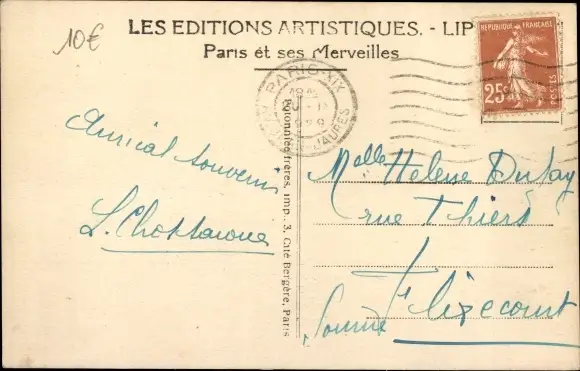 10€
LES EDITIONS ARTISTIQUES. - LIP
Paris et ses Merveilles
REPUBLIQUE FRANÇAISE
25c
POSTES
PARIS-XIX
JAURES
Amical souvenir
Melle Helene Dufay
rue Thiers
Flixecourt
Somme
frères, imp., 3, Cité Bergère, Paris